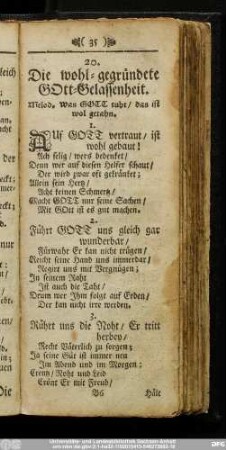 ( 35 )
20.
Die wohl-gegründete
GOtt-Gelassenheit.
Melod. Was GOTT tuht / das ist
wol getahn.
1.
AUf GOTT vertraut / ist
wohl gebaut!
Ach selig / wers bedenket /
Denn wer auf diesen Helfer schaut /
Der wird zwar oft gekränket;
Allein sein Hertz /
Acht keinen Schmertz /
Macht GOTT nur seine Sachen /
Mit GOtt ist es gut machen.
2.
Führt GOTT uns gleich gar
wunderbar /
Fürwahr Er kan nicht trügen /
Reicht seine Hand uns immerdar /
Regirt uns mit Vergnügen;
In seinem Raht
Ist auch die Taht /
Drum wer Ihm folgt auf Erden /
Der kan nicht irre werden.
3.
Rührt uns die Noht / Er tritt
herbey /
Recht Väterlich zu sorgen;
Ja seine Güt ist immer neu
Im Abend und im Morgen:
Creutz / Noht und Leid
Crönt Er mit Freud /
Hält